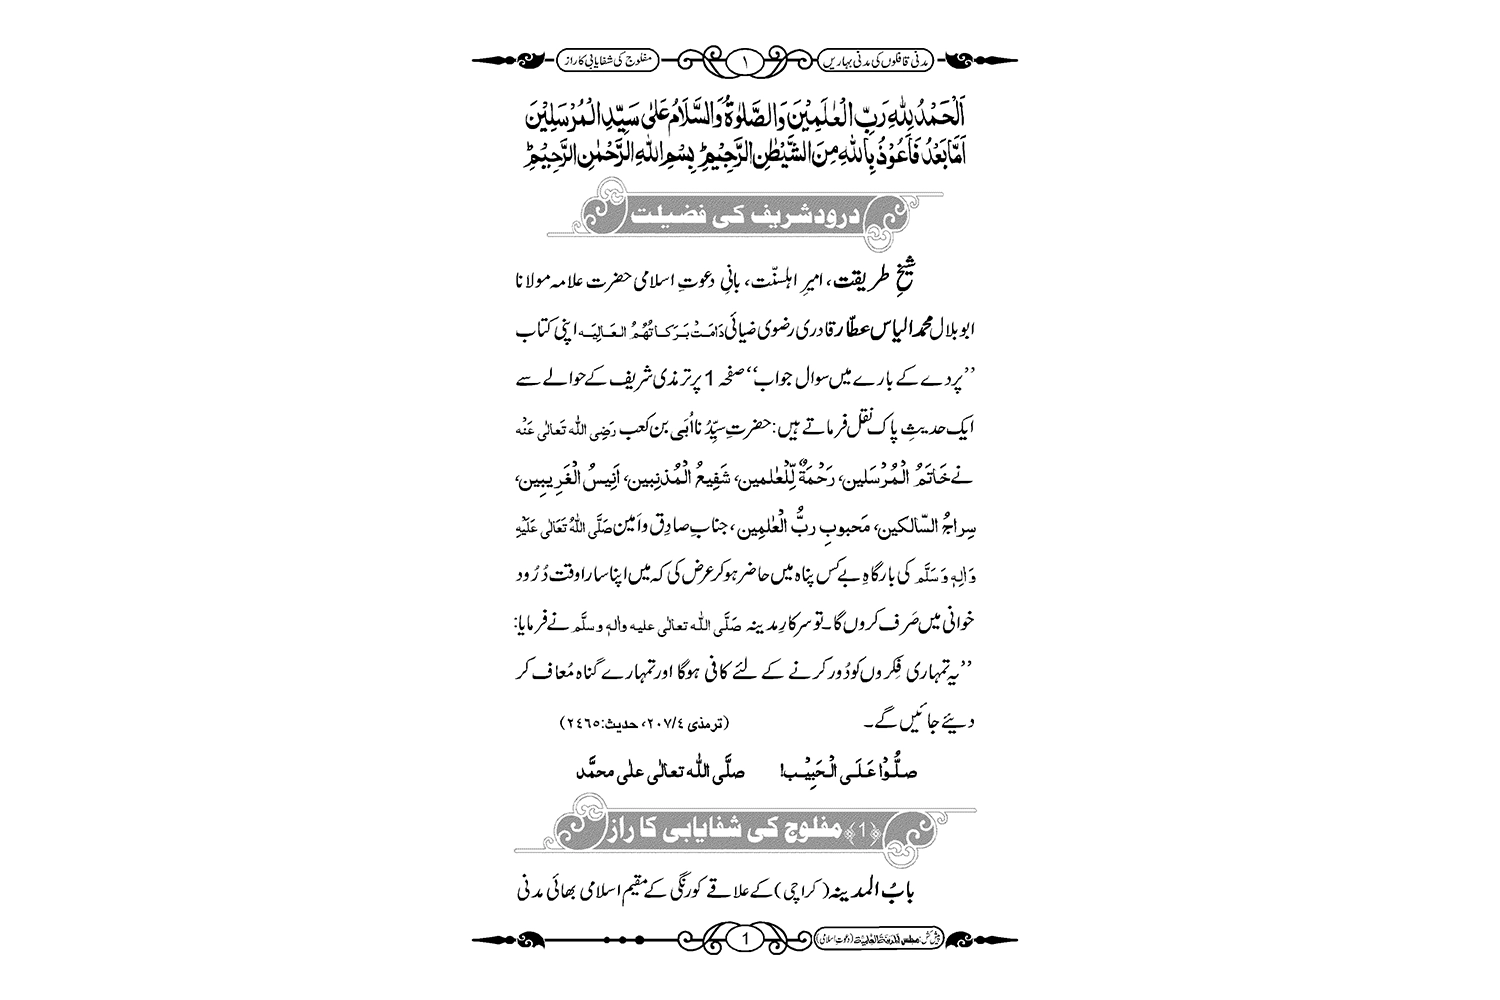 مدنی قافلوں کی مدنی بہاریں ۱ مفلوج کی شفایابی کا راز
اَلْحَمْدُ لِلّٰہِ رَبِّ الْعٰلَمِیْنَ وَالصَّلٰوۃُ وَالسَّلَامُ عَلٰی سَیِّدِ الْمُرْسَلِیْنَ
اَمَّا بَعْدُ فَاَعُوْذُ بِاللّٰہِ مِنَ الشَّیْطٰنِ الرَّجِیْمِ ؕ بِسْمِ اللّٰہِ الرَّحْمٰنِ الرَّحِیْمِ ؕ
درود شریف کی فضیلت
شیخِ طریقت، امیرِ اہلسنّت، بانیِ دعوتِ اسلامی حضرت علامہ مولانا
ابو بلال محمد الیاس عطّار قادری رضوی ضیائی دَامَتْ بَرَکَاتُہُمُ الْعَالِیَہ اپنی کتاب
’’پردے کے بارے میں سوال جواب‘‘ صفحہ 1 پر ترمذی شریف کے حوالے سے
ایک حدیثِ پاک نقل فرماتے ہیں: حضرتِ سیِّدُنا اُبَی بن کعب رَضِی اللہ تَعَالٰی عَنْہ
نے خَاتَمُ الْمُرْسَلین، رَحْمَۃٌ لِّلْعٰلمین، شَفِیعُ الْمُذنِبین، اَنِیسُ الْغَرِیبِین،
سِراجُ السّالکین، مَحبوبِ ربُّ الْعٰلمِین، جنابِ صادِق و اَمین صَلَّی اللّٰہُ تَعَالٰی عَلَیْہِ
وَاٰلِہٖ وَسَلَّم کی بارگاہِ بے کس پناہ میں حاضر ہو کر عرض کی کہ میں اپنا سارا وقت دُرُود
خوانی میں صَرف کروں گا۔ تو سرکارِ مدینہ صَلَّی اللّٰہ تعالٰی علیہ واٰلہٖ وسلَّم نے فرمایا:
’’یہ تمہاری فِکروں کو دُور کرنے کے لئے کافی ہوگا اور تمہارے گناہ مُعاف کر
دیئے جائیں گے۔ (ترمذی ۲۰۷/٤، حدیث:۲٤٦٥)
صلُّوْا عَلَی الْحَبِیْب! صلَّی اللّٰہ تعالٰی علٰی محمَّد
﴿1﴾ مفلوج کی شفایابی کا راز
بابُ المدینہ (کراچی) کے علاقے کورنگی کے مقیم اسلامی بھائی مدنی
پیش کش: مجلس اَلْمَدِیْنَۃُ الْعِلْمِیَّۃ (دعوتِ اسلامی) 1